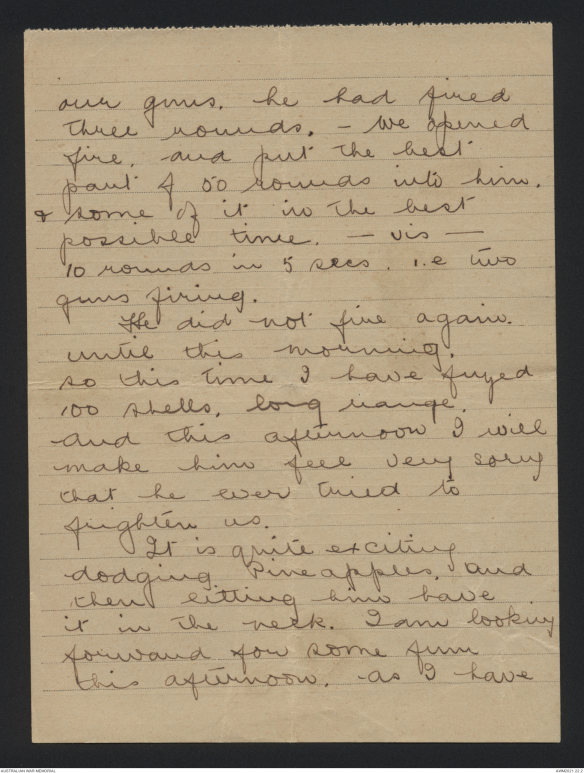 our guns. he had fired
three rounds. - We opened
fire. and put the best
part of 50 rounds into him.
& some of it in the best
possible time. - vis -
10 rounds in 5 secs. i.e two
guns firing.
He did not fire again.
until this morning.
so this time I have fuzed
100 shells. long range.
and this afternoon I will
make him feel very sorry
that he ever tried to
frighten us.
It is quite exciting
dodging Pineapples. and
then eitting him have
it in the neck. I am looking
forward for some fun
this afternoon. as I have
AUSTRALIAN WAR MEMORIAL